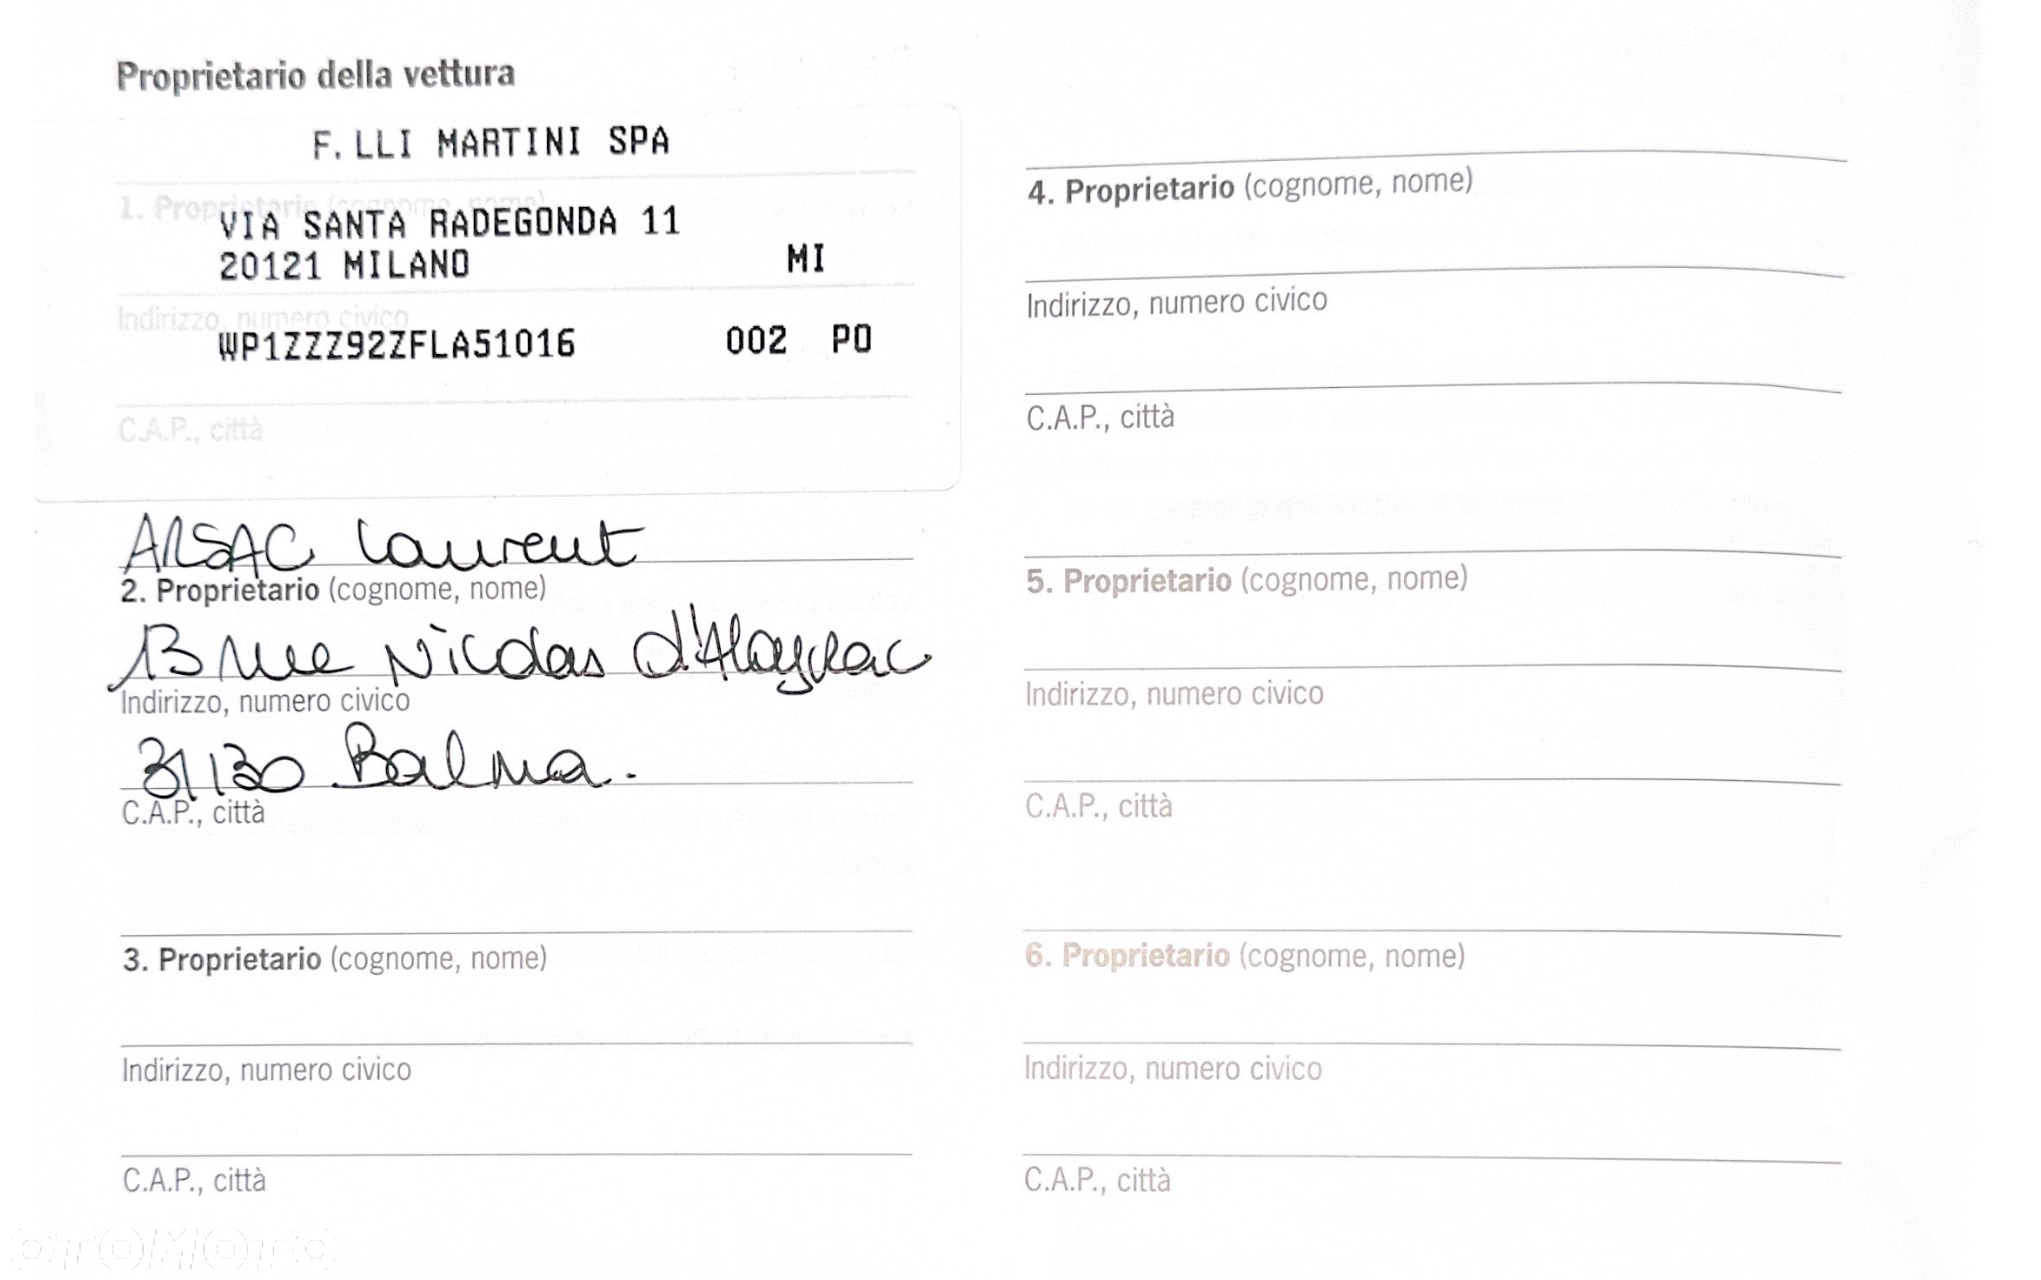 Proprietario della vettura
F.LLI MARTINI SPA
1. Proprietario (cognome, nome)
VIA SANTA RADEGONDA 11
20121 MILANO MI
Indirizzo, numero civico
WP1ZZZ92ZFLA51016 002 PO
C.A.P., città
ARSAC Laurent
2. Proprietario (cognome, nome)
13 rue Nicolas d'Alayrac
Indirizzo, numero civico
31130 Balma.
C.A.P., città
3. Proprietario (cognome, nome)
Indirizzo, numero civico
C.A.P., città
4. Proprietario (cognome, nome)
Indirizzo, numero civico
C.A.P., città
5. Proprietario (cognome, nome)
Indirizzo, numero civico
C.A.P., città
6. Proprietario (cognome, nome)
Indirizzo, numero civico
C.A.P., città
OTOMOTO